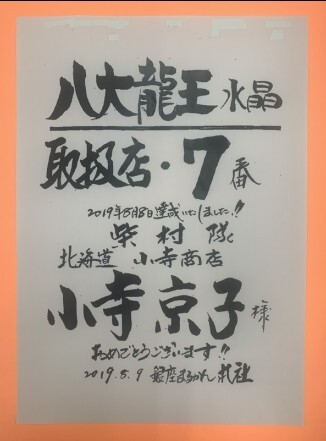 八大龍王 水晶
取扱店・7番
2019年5月8日達成いたしました!!
柴村隊
北海道 小寺商店
小寺京子様
おめでとうございます!!
2019.5.9 銀座まるかん 札社